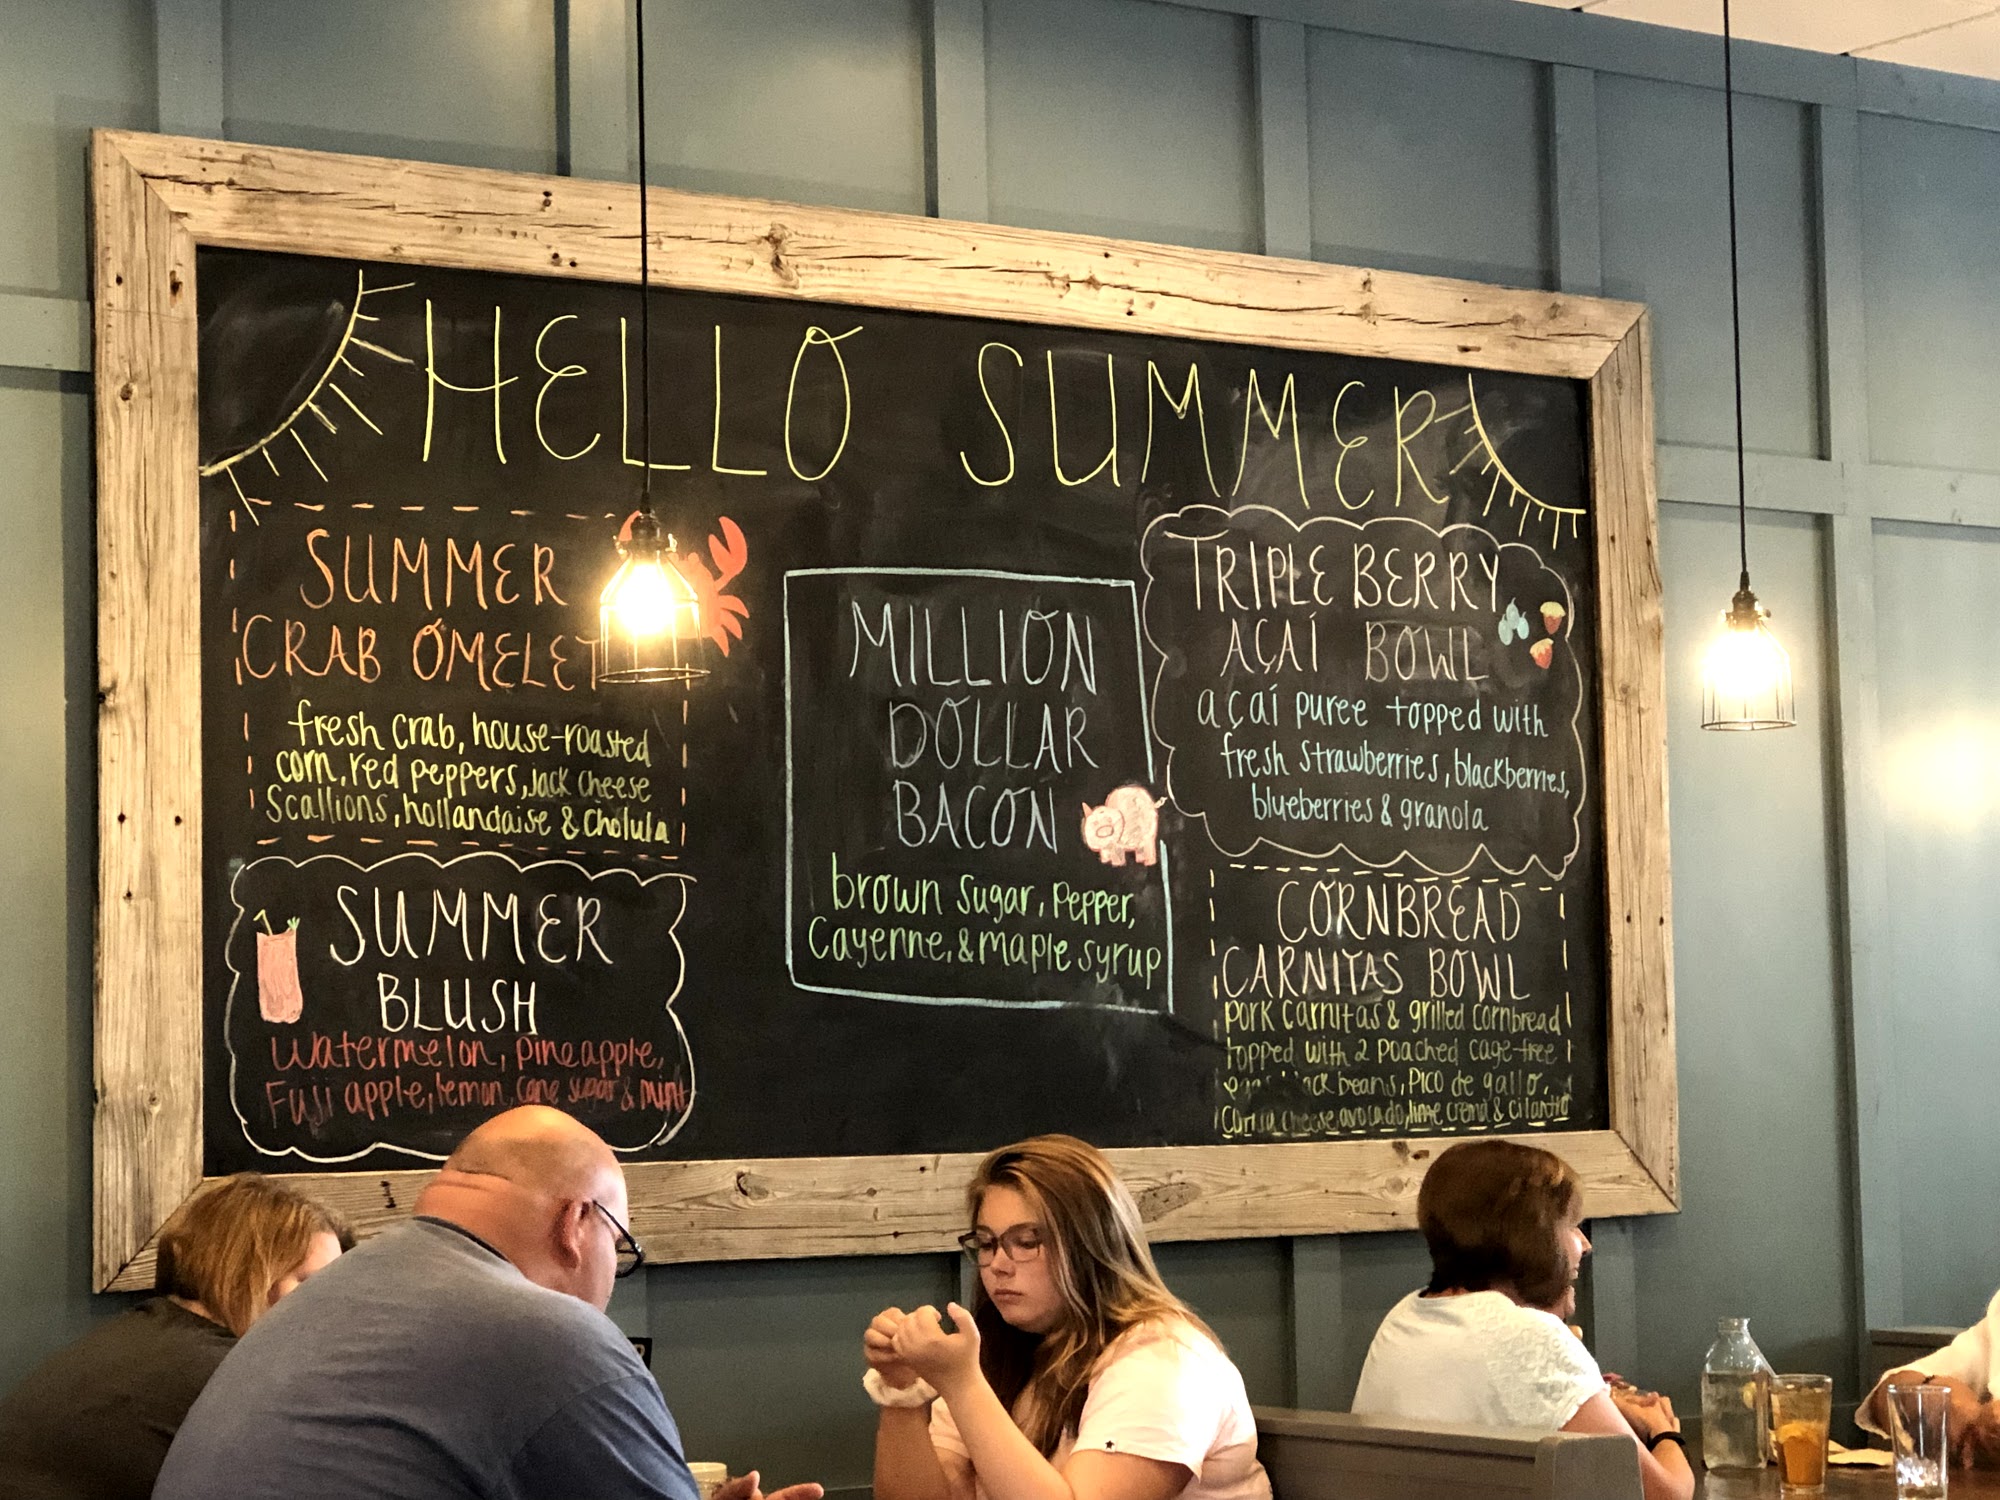 HELLO SUMMER
SUMMER
CRAB OMELET
fresh crab, house-roasted
corn, red peppers, jack cheese
scallions, hollandaise & cholula
SUMMER
BLUSH
watermelon, pineapple,
Fuji apple, lemon, cane sugar & mint
MILLION
DOLLAR
BACON
brown sugar, pepper,
Cayenne, & maple syrup
TRIPLE BERRY
AÇAÍ BOWL
açaí puree topped with
fresh strawberries, blackberries,
blueberries & granola
CORNBREAD
CARNITAS BOWL
pork carnitas & grilled cornbread
topped with 2 poached cage-free
beans, pico de gallo,
cheese, avocado, lime crema & cilantro